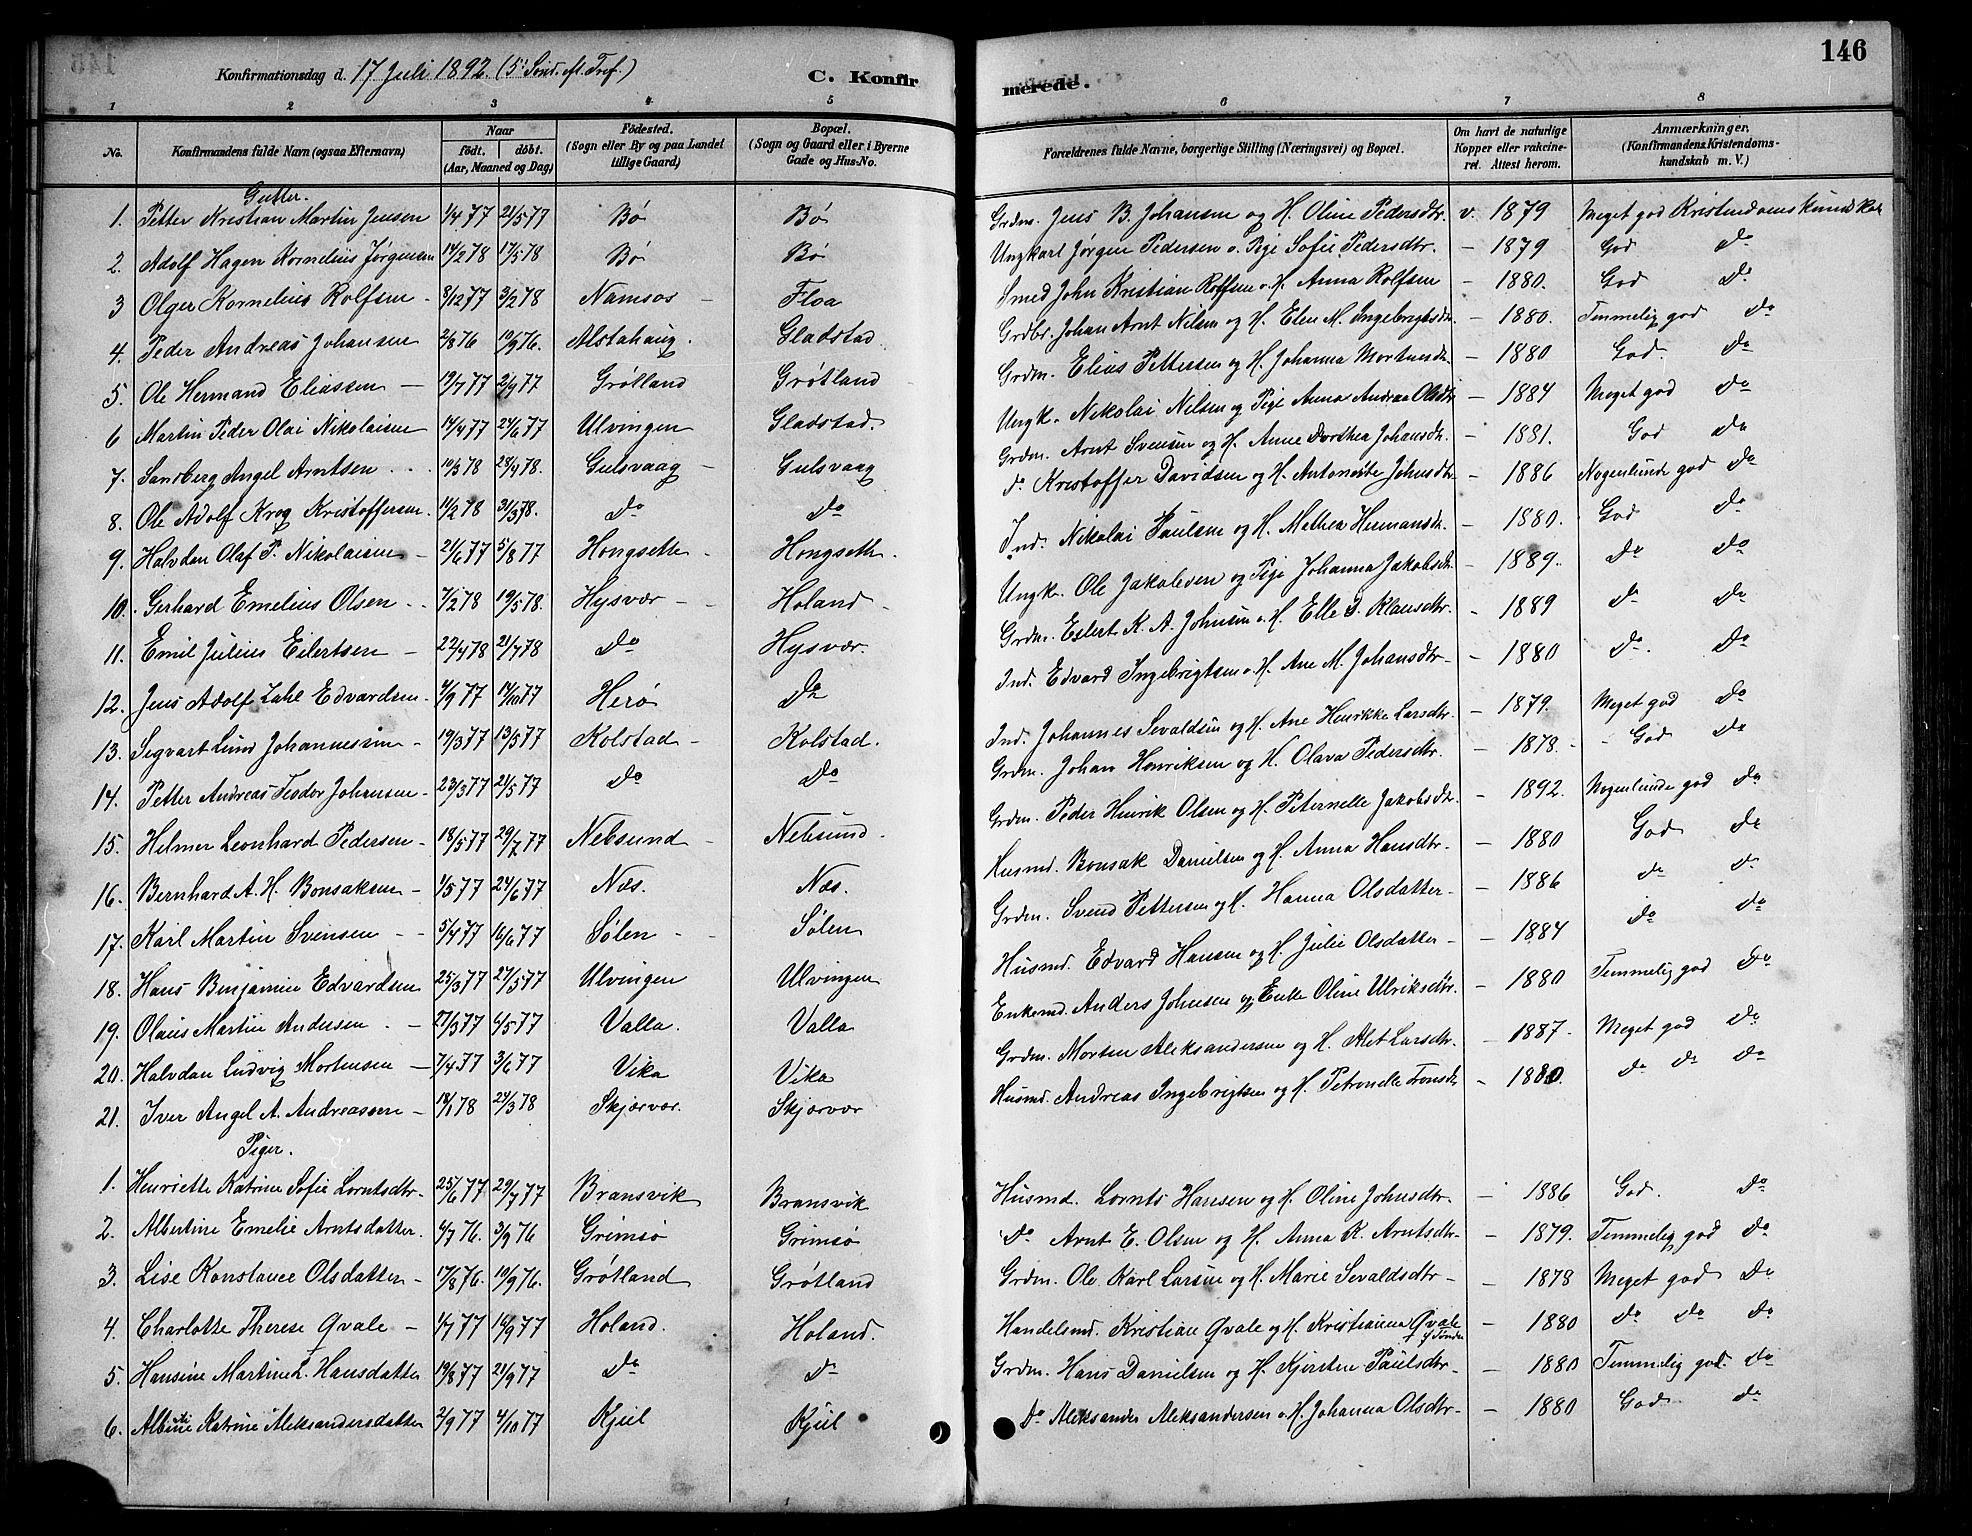 146
Konfirmationsdag d. 17 Juli 1892. (5' Sønd. eft. Tref.)
C. Konfirmerede.
1 2 3 4 5 6 7 8
No. Konfirmandens fulde Navn (ogsaa Efternavn) Naar født. døbt. (Aar, Maaned og Dag) Fødested. (Sogn eller By og paa Landet tillige Gaard) Bopæl. (Sogn og Gaard eller i Byerne Gade og Hus-No. Forældrenes fulde Navne, borgerlige Stilling (Næringsvei) og Bopæl. Om havt de naturlige Kopper eller vakcineret. Attest herom. Anmærkninger. (Konfirmandens Kristendomskundskab m. V.)
Gutter.
1. Petter Kristian Martin Jensen 1/4 77 21/5 77 Bø Bø Grdm. Jens B. Johansen og H. Oline Pedersdtr. v. 1879 Meget god Kristendomskundskab
2. Adolf Hagen Kornelius Jørgensen 14/2 78 17/5 78 Bø Bø Ungkarl Jørgen Pedersen o. Pige Sofie Pedersdtr. - 1879 God do
3 Olger Kornelius Rolfsen - 8/12 77 3/2 78 Namsos - Floa Smed John Kristian Rolfsen o. H. Anna Rolfsen - 1880. God do
4. Peder Andreas Johansen 2/8 76 19/9 76. Alstahaug. Gladstad Grdbr. Johan Arnt Nilsen og H. Elen M. Ingebrigtsdtr. - 1880. Temmelig god do
5. Ole Hermand Eliassen - 19/7 77 2/9 77 Grøtland Grøtland Grdm. Elias Pettersen og H. Johanna Mortensdtr. - 1880 God. do
6 Martin Peder Olai Nikolaisen 14/4 77 24/6 77 Ulvingen Gladstad. Ungk. Nikolai Nilsen og Pige Anna Andrea Olsdtr - 1884 Meget god do
7. Sandberg Angel Arntsen 10/3 78 28/4 78. Gulsvaag - Gulsvaag Grdm. Arnt Svensen og H. Anne Dorthea Johansdtr. - 1881. God do
8. Ole Adolf Krog Kristoffersen. 14/2 78 31/3 78. do do do Kristoffer Davidsen og H. Antonette Johnsdtr - 1886 Nogenlunde god do
9. Halvdan Olaf P. Nikolaisen - 21/6 77 5/8 77 Hongseth - Hongseth. Ind. Nikolai Paulsen og H. Methea Hermansdtr. - 1880. God do
10. Gerhard Emelius Olsen - 7/2 78 19/5 78. Hysvær - Holand - Ungk. Ole Jakobsen og Pige Johanna Jakobsdtr - 1889. do do
11. Emil Julius Eilertsen - 22/4 78 21/7 78 do Hysvær. Grdm. Eilert K. A. Johnsen o. H. Elle D. Klausdtr. - 1889 do do
12. Jens Adolf Zahl Edvardsen. 4/9 77 14/10 77 Herø do Ind. Edvard Ingebrigtsen o. H. Ane M. Johansdtr - 1880 do do
13. Segvart Lund Johannessen - 19/3 77 13/5 77 Kolstad - Kolstad. Ind. Johannes Sevaldsen og H. Ane Henrikke Larsdtr. - 1879. Meget god do
14. Petter Andreas Teodor Johansen - 23/3 77 21/5 77 do do Grdm. Johan Henriksen og H. Olava Pedersdtr. - 1878. - God do
15. Helmer Leonhard Pedersen - 18/5 77 29/7 77 Nebsund - Nebsund. Grdm. Peder Henrik Olsen og H. Peternelle Jakobsdtr. - 1892. Nogenlunde god do
16. Bernhard A. H. Bonsaksen - 1/5 77 24/6 77 Næs. Næs. Husmd. Bonsak Danielsen og H. Anna Hansdtr. - 1880 God do
17. Karl Martin Svensen - 5/4 77 16/6 77 Sølen - Sølen Grdm. Svend Pettersen og H. Hanna Olsdatter - - 1886 do do
18. Hans Benjamin Edvardsen 25/3 77 27/5 77 Ulvingen Ulvingen Husmd. Edvard Hansen og H. Julie Olsdatter - - 1884 do do
19. Olaus Martin Andersen - 27/3 77 4/5 77 Valla. Valla Enkemd. Anders Johnsen og Enke Oline Ulriksdtr. - 1880 Temmelig god do
20. Halvdan Ludvig Mortensen - 7/4 77 3/6 77 Vika Vika Grdm. Morten Aleksandersen og H. Alet Larsdtr. - 1887. Meget god do
21. Iver Angel A. Andreassen - 18/1 78 24/3 78 Skjærvær. Skjærvær Husmd. Andreas Ingebrigtsen og H. Petronelle Tronsdtr - 1880. do do do
Piger.
1. Henriette Katrine Sofie Lorntsdtr - 25/6 77 29/7 77 Bransvik Bransvik Husmd. Lornts Hansen og H. Oline Johnsdtr. - 1886 God. do
2. Albertine Emelie Arntsdatter. 4/7 76. 3/9 76 Grimsø Grimsø do Arnt E. Olsen og H. Anna K. Arntsdtr - - 1879. Temmelig god do
3. Lise Konstance Olsdatter - 17/8 76. 10/9 76. Grøtland Grøtland Grdm. Ole Karl Larsen og H. Marie Sevaldsdtr - - 1878 Meget god do
4. Charlotte Therese Qvale - 1/7 77 18/9 77 Holand. Holand. Handelsmd. Kristian Qvale og H. Kristianna Qvale - 1880 do do do
5. Hansine Martine L. Hansdatter 19/8 77 21/9 77 do do Grdm. Hans Danielsen og H. Kjersten Paulsdtr - - 1880 Temmelig god do
6. Albine Katrine Aleksandersdatter 2/9 77 4/10 77 Kjul Kjul do Aleksander Aleksandersen o. H. Johanna Olsdtr - - 1880 God do